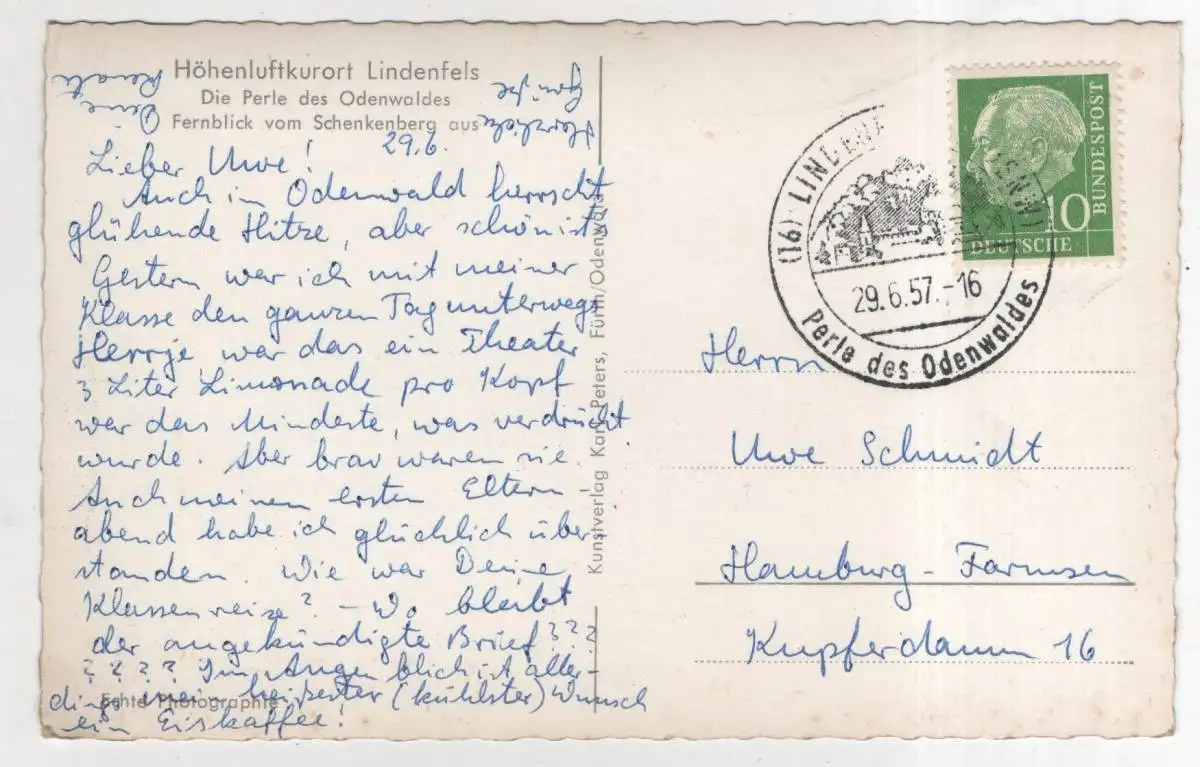 Höhenluftkurort Lindenfels
Die Perle des Odenwaldes
Fernblick vom Schenkenberg aus
29.6.
Lieber Uwe!
Auch im Odenwald herrscht
glühende Hitze, aber schön ists
Gestern war ich mit meiner
Klasse den ganzen Tag unterwegs
Herrje war das ein Theater
3 Liter Limonade pro Kopf
war das Mindeste, was verdrückt
wurde. Aber brav waren sie.
Auch meinen ersten Eltern-
abend habe ich glücklich über-
standen. Wie war Deine
Klassenreise? - Wo bleibt
der angekündigte Brief???
???? Im Augenblick ist aller-
dings mein heißester (kühlster) Wunsch
ein Eiskaffee!
Herzliche
Grüße
Deine
Renate
Echte Photographie
Kunstverlag Karl Peters, Fürth/Odenwald
(16) LINDENF
DENW)
29.6.57.-16
Perle des Odenwaldes
10
DEUTSCHE
BUNDESPOST
Herrn
Uwe Schmidt
Hamburg-Farmsen
Kupferdamm 16